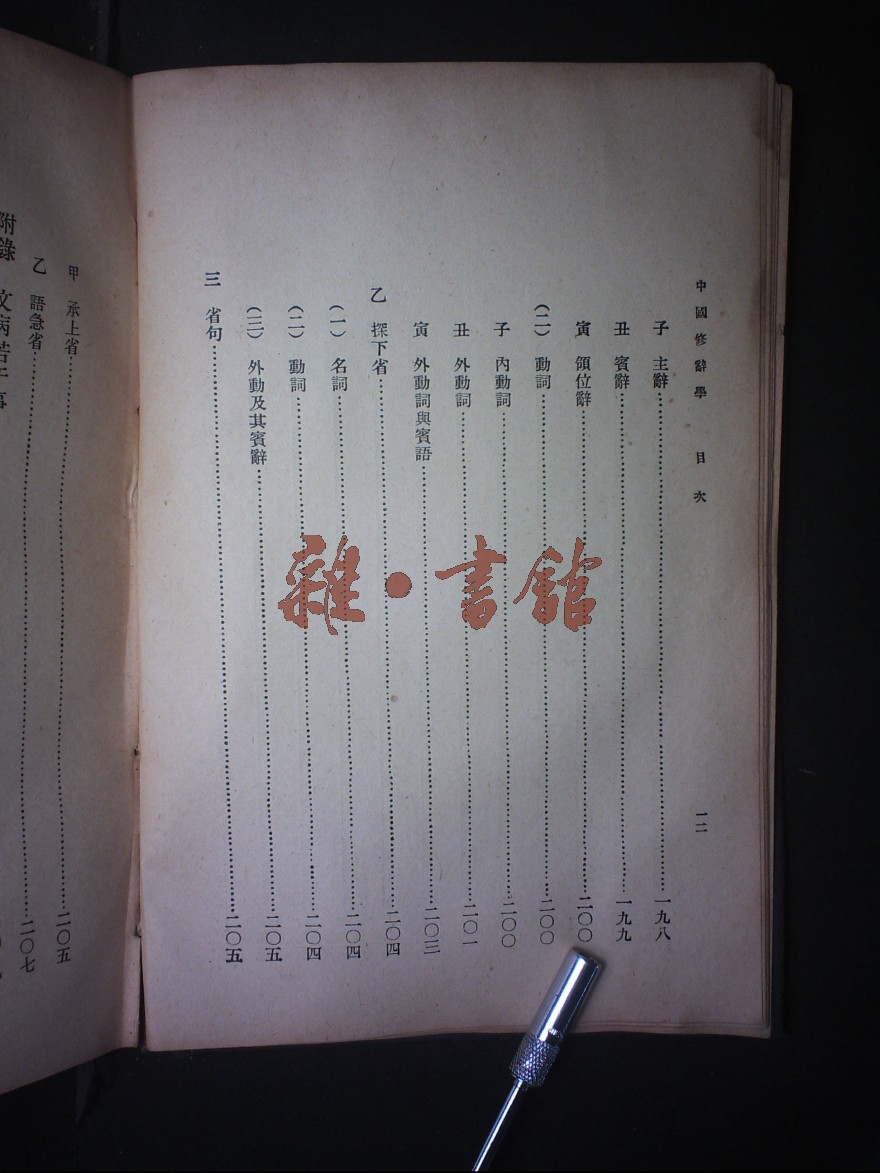 中國修辭學 目次 一二
子 主辭……一九八
丑 賓辭……一九九
寅 領位辭……二〇〇
(二) 動詞……二〇〇
子 內動詞……二〇〇
丑 外動詞……二〇一
寅 外動詞與賓語……二〇三
乙 探下省……二〇四
(一) 名詞……二〇四
(二) 動詞……二〇四
(三) 外動及其賓辭……二〇五
三 省句……二〇五
甲 承上省……二〇五
乙 語急省……二〇七
附錄 文病若干事
雜·書館